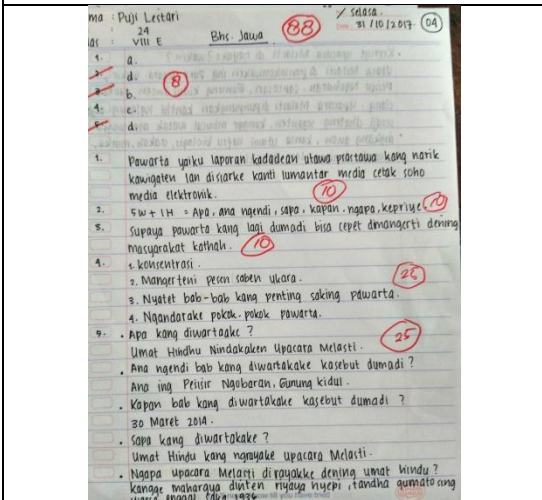 ma : Puji Lestari
Selasa
31/10/2017 (04)
24
as : VIII E
Bhs. Jawa
88
1. a.
2. d.
8
3. b.
4. c.
5. d.
1. Pawarta yaiku laporan kadadean utawa prastawa kang narik
kawigaten lan disiarke kanti lumantar media cetak soho
media elektronik.
10
2. 5W + 1H = Apa, ana ngendi, sapa, kapan, ngapa, kepriye.
10
3. Supaya pawarta kang lagi dumadi bisa cepet dimangerti dening
masyarakat kathah.
10
4. 1. konsentrasi.
2. Mangerteni pesen saben ukara.
25
3. Nyatet bab-bab kang penting saking pawarta.
4. Ngandarake pokok-pokok pawarta.
5. • Apa kang diwartakake ?
25
Umat Hindhu Nindakaken Upacara Melasti.
• Ana ngendi bab kang diwartakake kasebut dumadi ?
Ana ing Peisir Ngobaran, Gunung kidul.
• Kapan bab kang diwartakake kasebut dumadi ?
30 Maret 2014.
• Sapa kang diwartakake ?
Umat Hindu kang ngrayake upacara Melasti.
• Ngapa upacara Melasti dirayakke dening umat hindu ?
kangge maharaya dinten riyaya nyepi, tandha gumatoang
1936